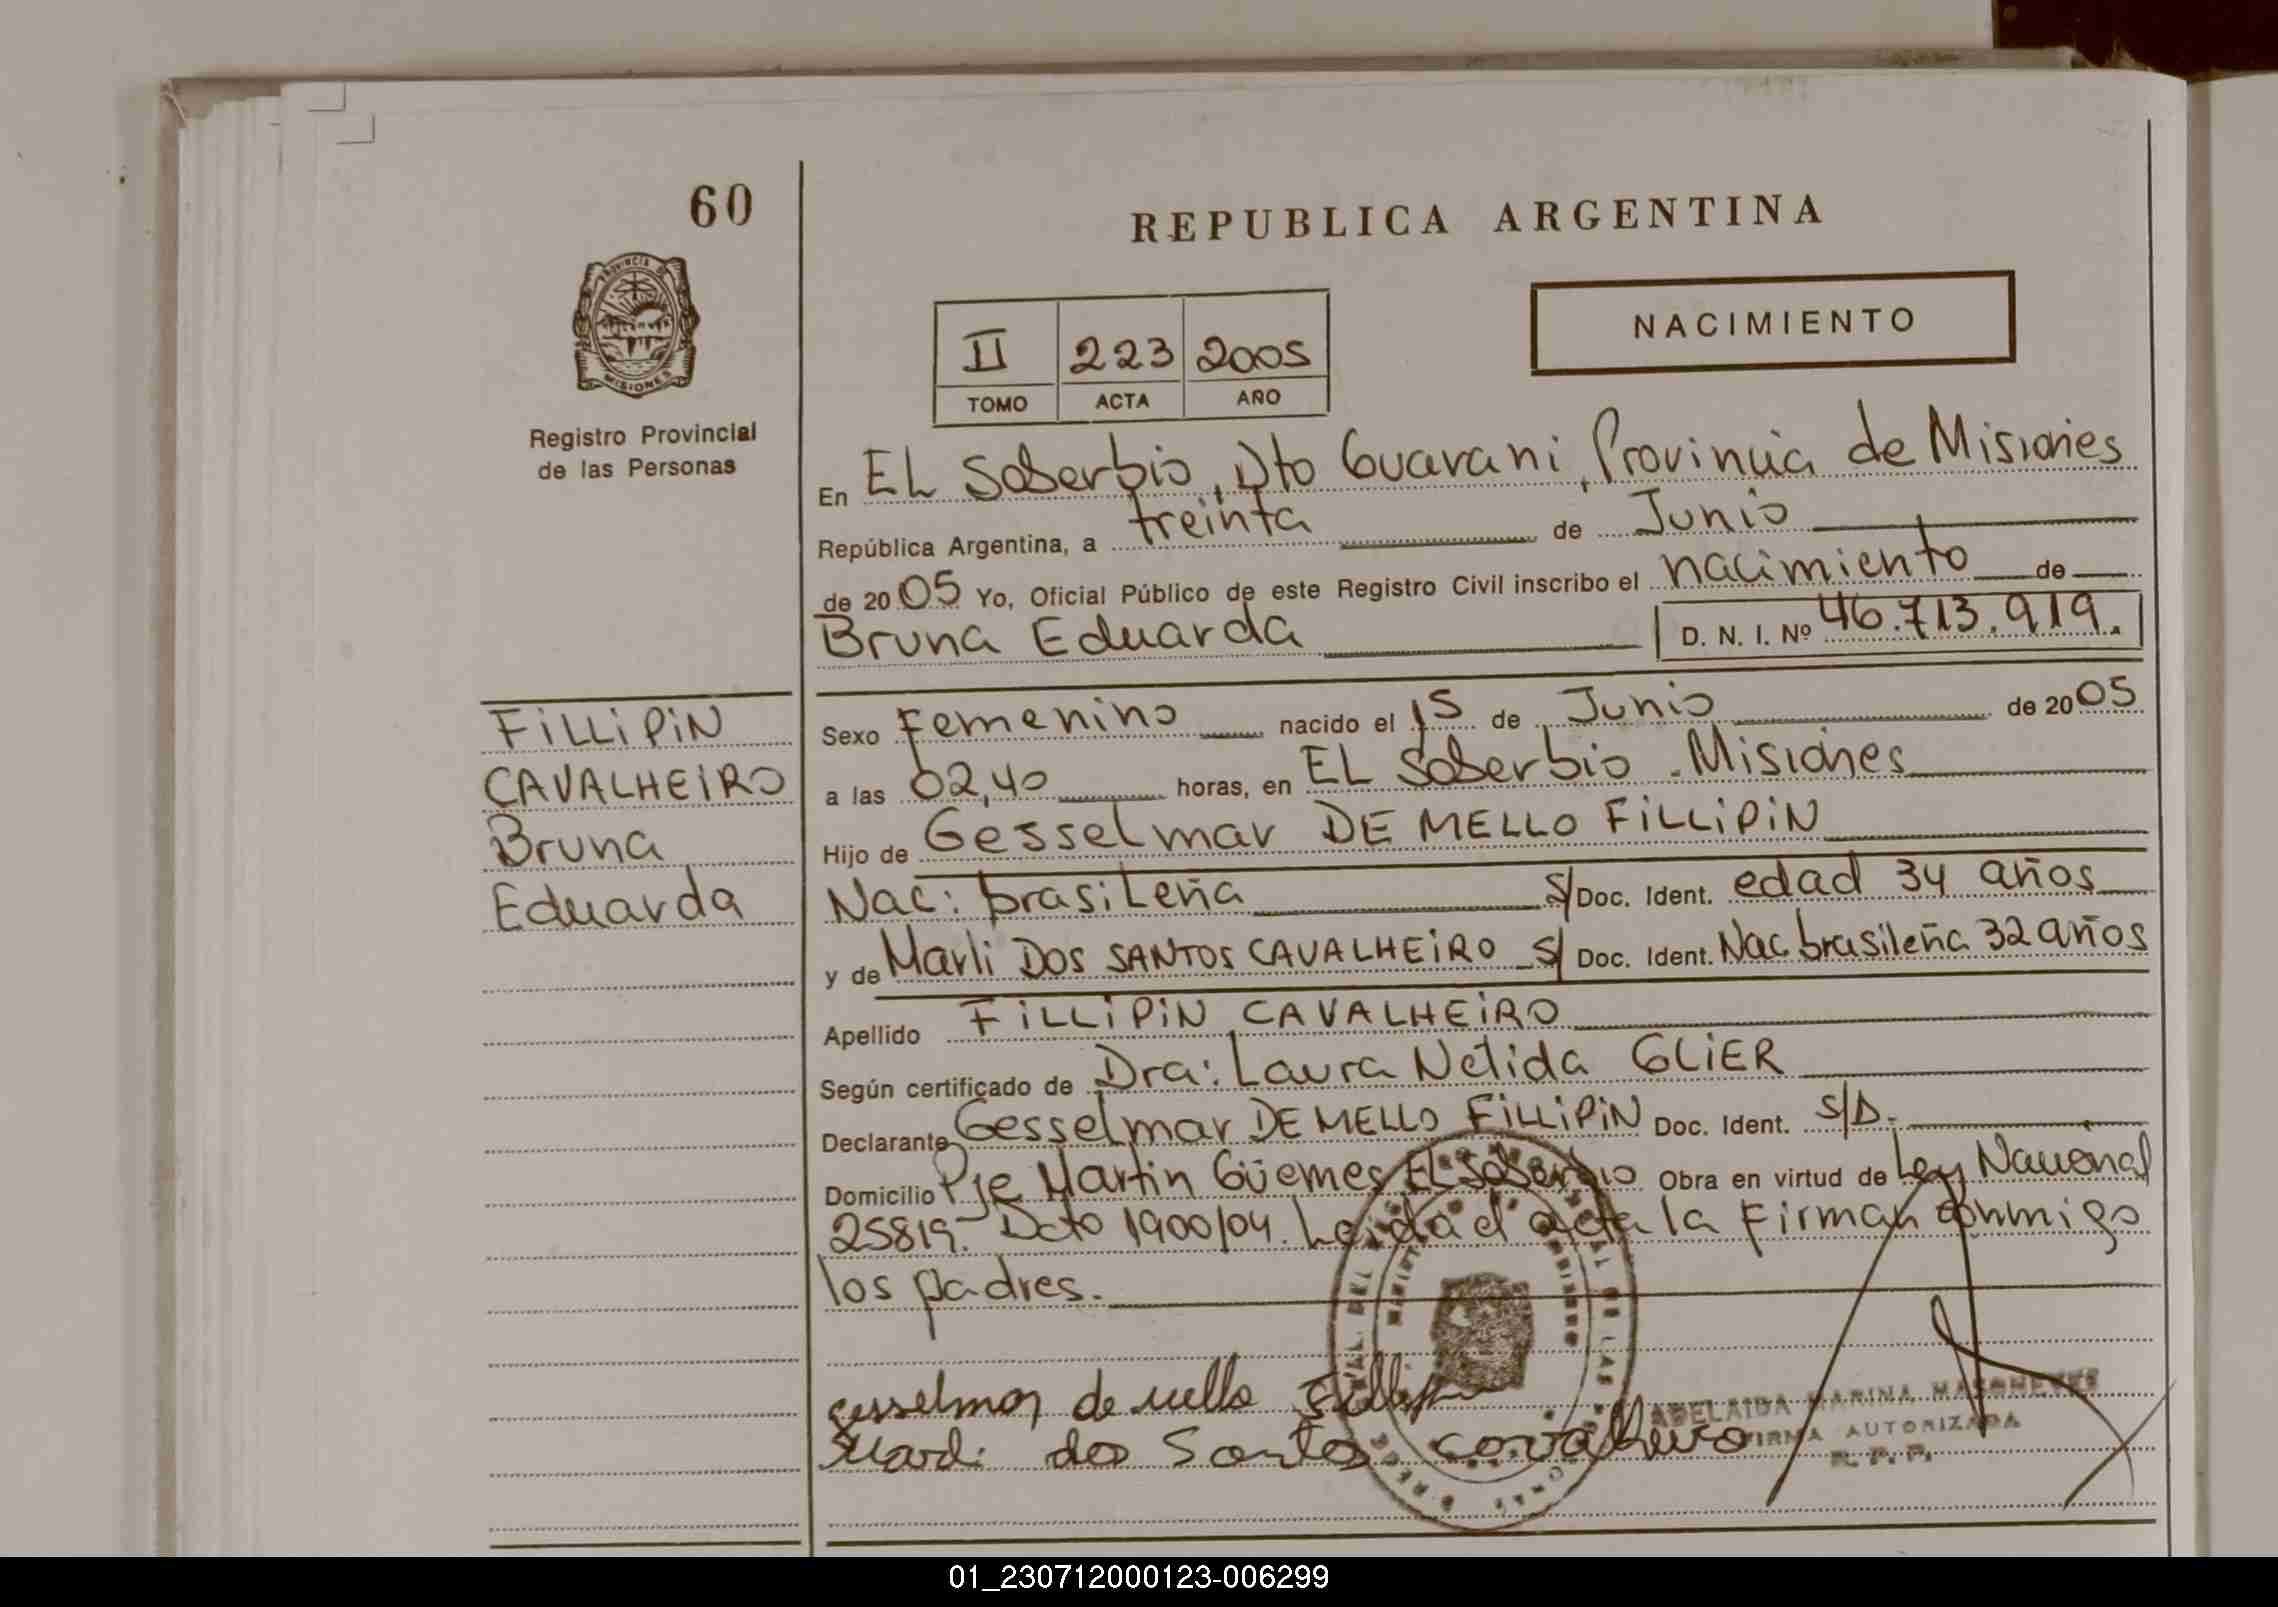 60
REPUBLICA ARGENTINA
PROVINCIA DE
MISIONES
NACIMIENTO
II 223 2005
TOMO ACTA AÑO
Registro Provincial
de las Personas
En EL Soberbio, Dto Guarani, Provincia de Misiones
República Argentina, a treinta de Junio
de 2005 Yo, Oficial Público de este Registro Civil inscribo el nacimiento de
Bruna Eduarda D. N. I. Nº 46.713.919.
FiLLiPiN
CAVALHEiRO
Bruna
Eduarda
Sexo Femenino nacido el 15 de Junio de 2005
a las 02,40 horas, en EL Soberbio - Misiones
Hijo de Gesselmar DE MELLO FiLLiPiN
Nac: brasiLeña S/ Doc. Ident. edad 34 años
y de Marli DOS SANTOS CAVALHEiRO S/ Doc. Ident. Nac brasileña 32 años
Apellido FiLLiPiN CAVALHEiRO
Según certificado de Dra: Laura Nélida GLiER
Declarante Gesselmar DE MELLO FiLLiPiN Doc. Ident. S/D.
Domicilio Pje Martin Güemes EL Soberbio Obra en virtud de Ley Nacional
25819.- Dcto 1900/04. Leida el acta la Firman conmigo
los padres.
gesselmar de mello Fillipin
Marli dos Santos cavalheiro
ADELAIDA MARINA
FIRMA AUTORIZADA
R. P. P.
01_230712000123-006299